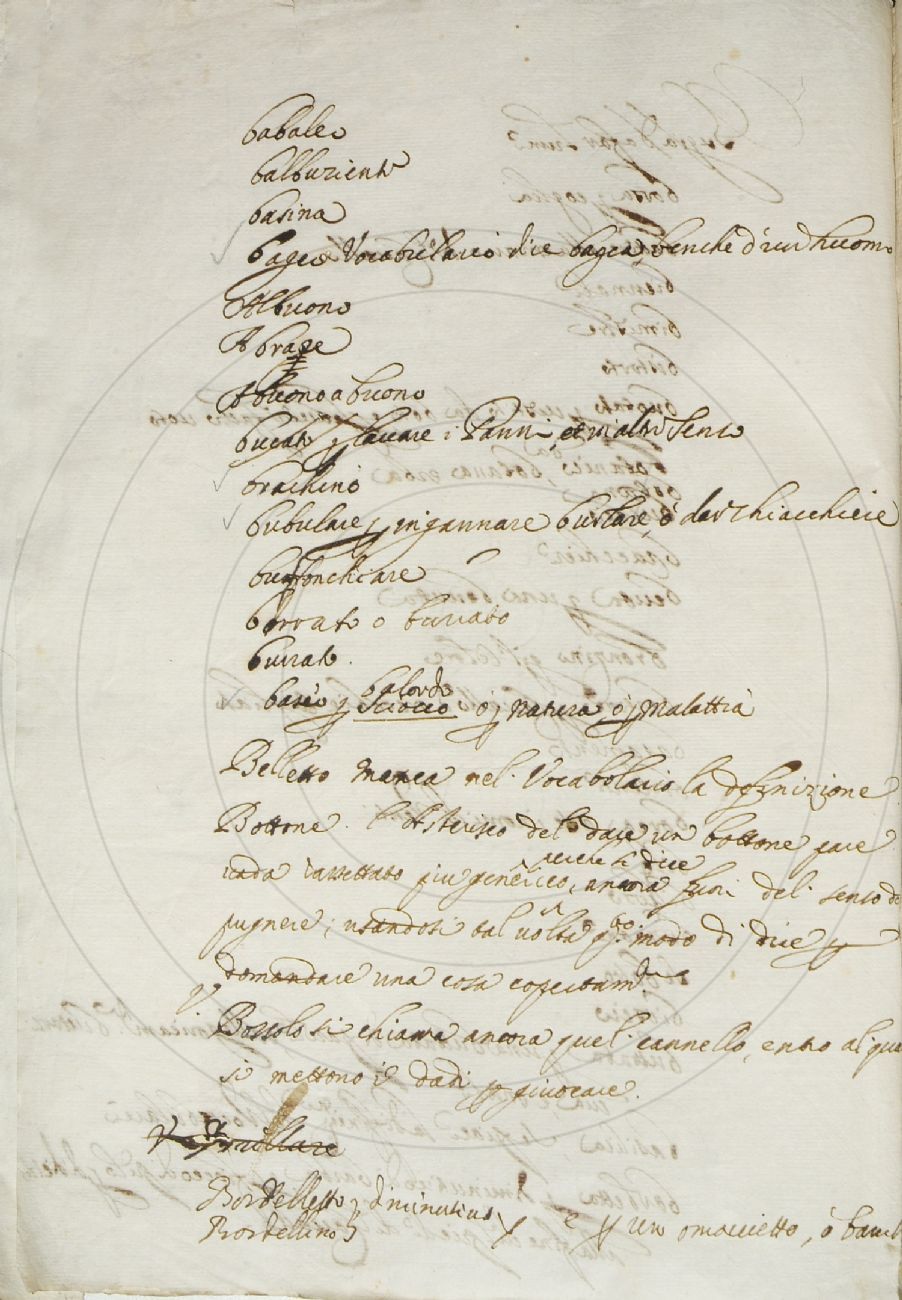 babaleo
balbuziente
basina
bageo Vocabulario dice bagea, benche d'un huomo
Al buono
A brace
A buono a buono
bucato p lavare i Panni, et in altro senso
brachino
bubulare p ingannare burlare, ò dar chiacchiere
bufonchiare
borrato o burrato
burrato.
baseo p balordo
sciocco ò p natura ò p Malattia
Belletto manca nel Vocabolario la definizione
Bottone. l'Asterisco del dare un bottone pare
vada rassettato piu generico, ancora fuori del senso de
pugnere; usandosi tal volta qto modo di dire p
domandare una cosa copertamte
Bossolo si chiama ancora quel cannello, entro al que
si mettono i dadi p giuocare.
Bordelletto
Bordellino diminutivo e p un omaccietto, ò bam